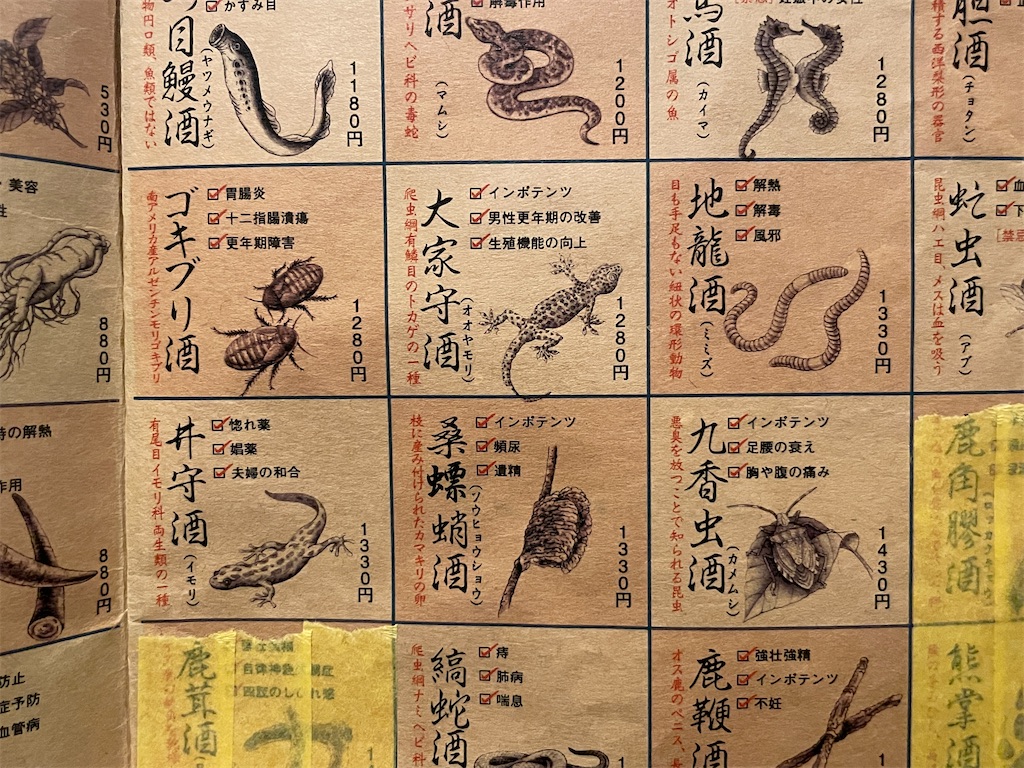 530円
目鰻酒
(ヤツメウナギ)
かすみ目
物円口類、魚類ではない
1180円
酒
(マムシ)
解毒作用
サリヘビ科の毒蛇
1200円
馬酒
(カイマ)
オトシゴ属の魚
1280円
胆酒
(チョタン)
積する西洋梨形の器官
美容
性
880円
ゴキブリ酒
胃腸炎
十二指腸潰瘍
更年期障害
南アメリカ産アルゼンチンモリゴキブリ
1280円
大家守酒
(オオヤモリ)
インポテンツ
男性更年期の改善
生殖機能の向上
爬虫綱有鱗目のトカゲの一種
1280円
地龍酒
(ミミズ)
解熱
解毒
風邪
目も手足もない紐状の環形動物
1330円
虻虫酒
(アブ)
血
下
[禁忌
昆虫綱ハエ目、メスは血を吸う
時の解熱
作用
880円
井守酒
(イモリ)
惚れ薬
媚薬
夫婦の和合
有尾目イモリ科 両生類の一種
1330円
桑螵蛸酒
(ソウヒョウショウ)
インポテンツ
頻尿
遺精
枝に産み付けられたカマキリの卵
1330円
九香虫酒
(カメムシ)
インポテンツ
足腰の衰え
胸や腹の痛み
悪臭を放つことで知られる昆虫
1430円
鹿角膠酒
防止
症予防
血管病
鹿茸酒
縞蛇酒
痔
肺病
喘息
爬虫綱ナミヘビ科
鹿鞭酒
強壮強精
インポテンツ
不妊
オス鹿のペニス、
熊掌酒